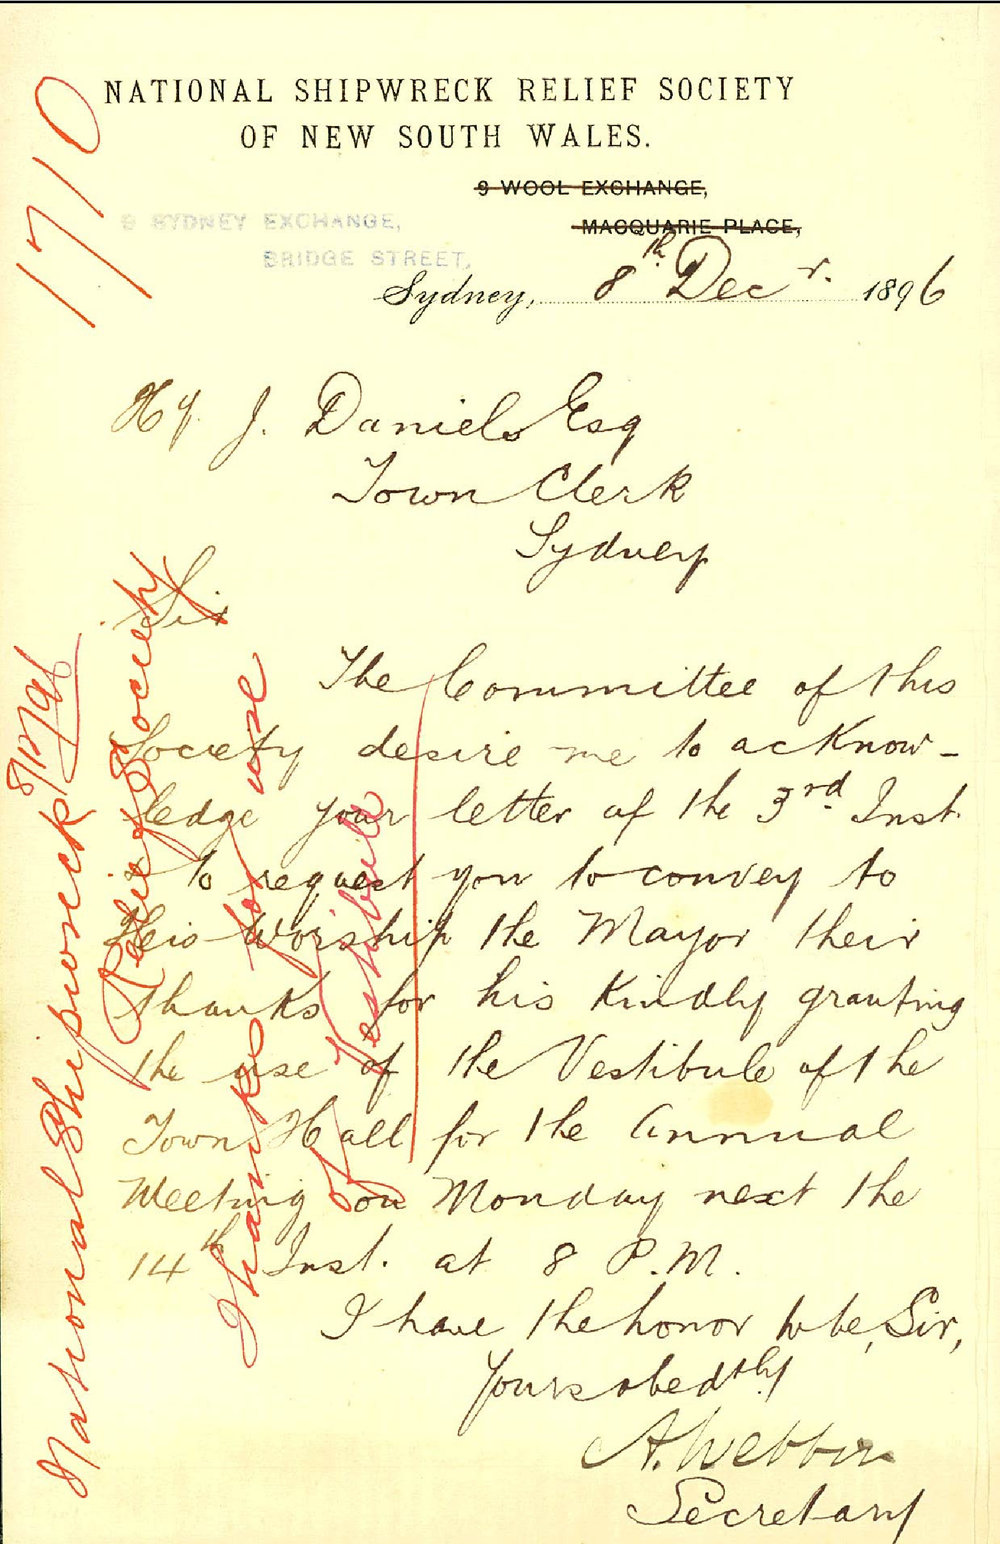 NATIONAL SHIPWRECK RELIEF SOCIETY
OF NEW SOUTH WALES.
9 WOOL EXCHANGE,
MACQUARIE PLACE,
9 SYDNEY EXCHANGE,
BRIDGE STREET,
Sydney, 8th Decr. 1896
Hy. J. Daniels Esq
Town Clerk
Sydney
Sir
The Committee of this
Society desire me to acknow-
ledge your letter of the 3rd Inst.
to request you to convey to
His Worship the Mayor their
thanks for his kindly granting
the use of the Vestibule of the
Town Hall for the Annual
Meeting on Monday next the
14th Inst. at 8 P.M.
I have the honor to be, Sir,
Yours obedtly
A. Webber
Secretary
1710
National Shipwreck 8/12/96
Relief Society
Thanks for use
of Vestibule